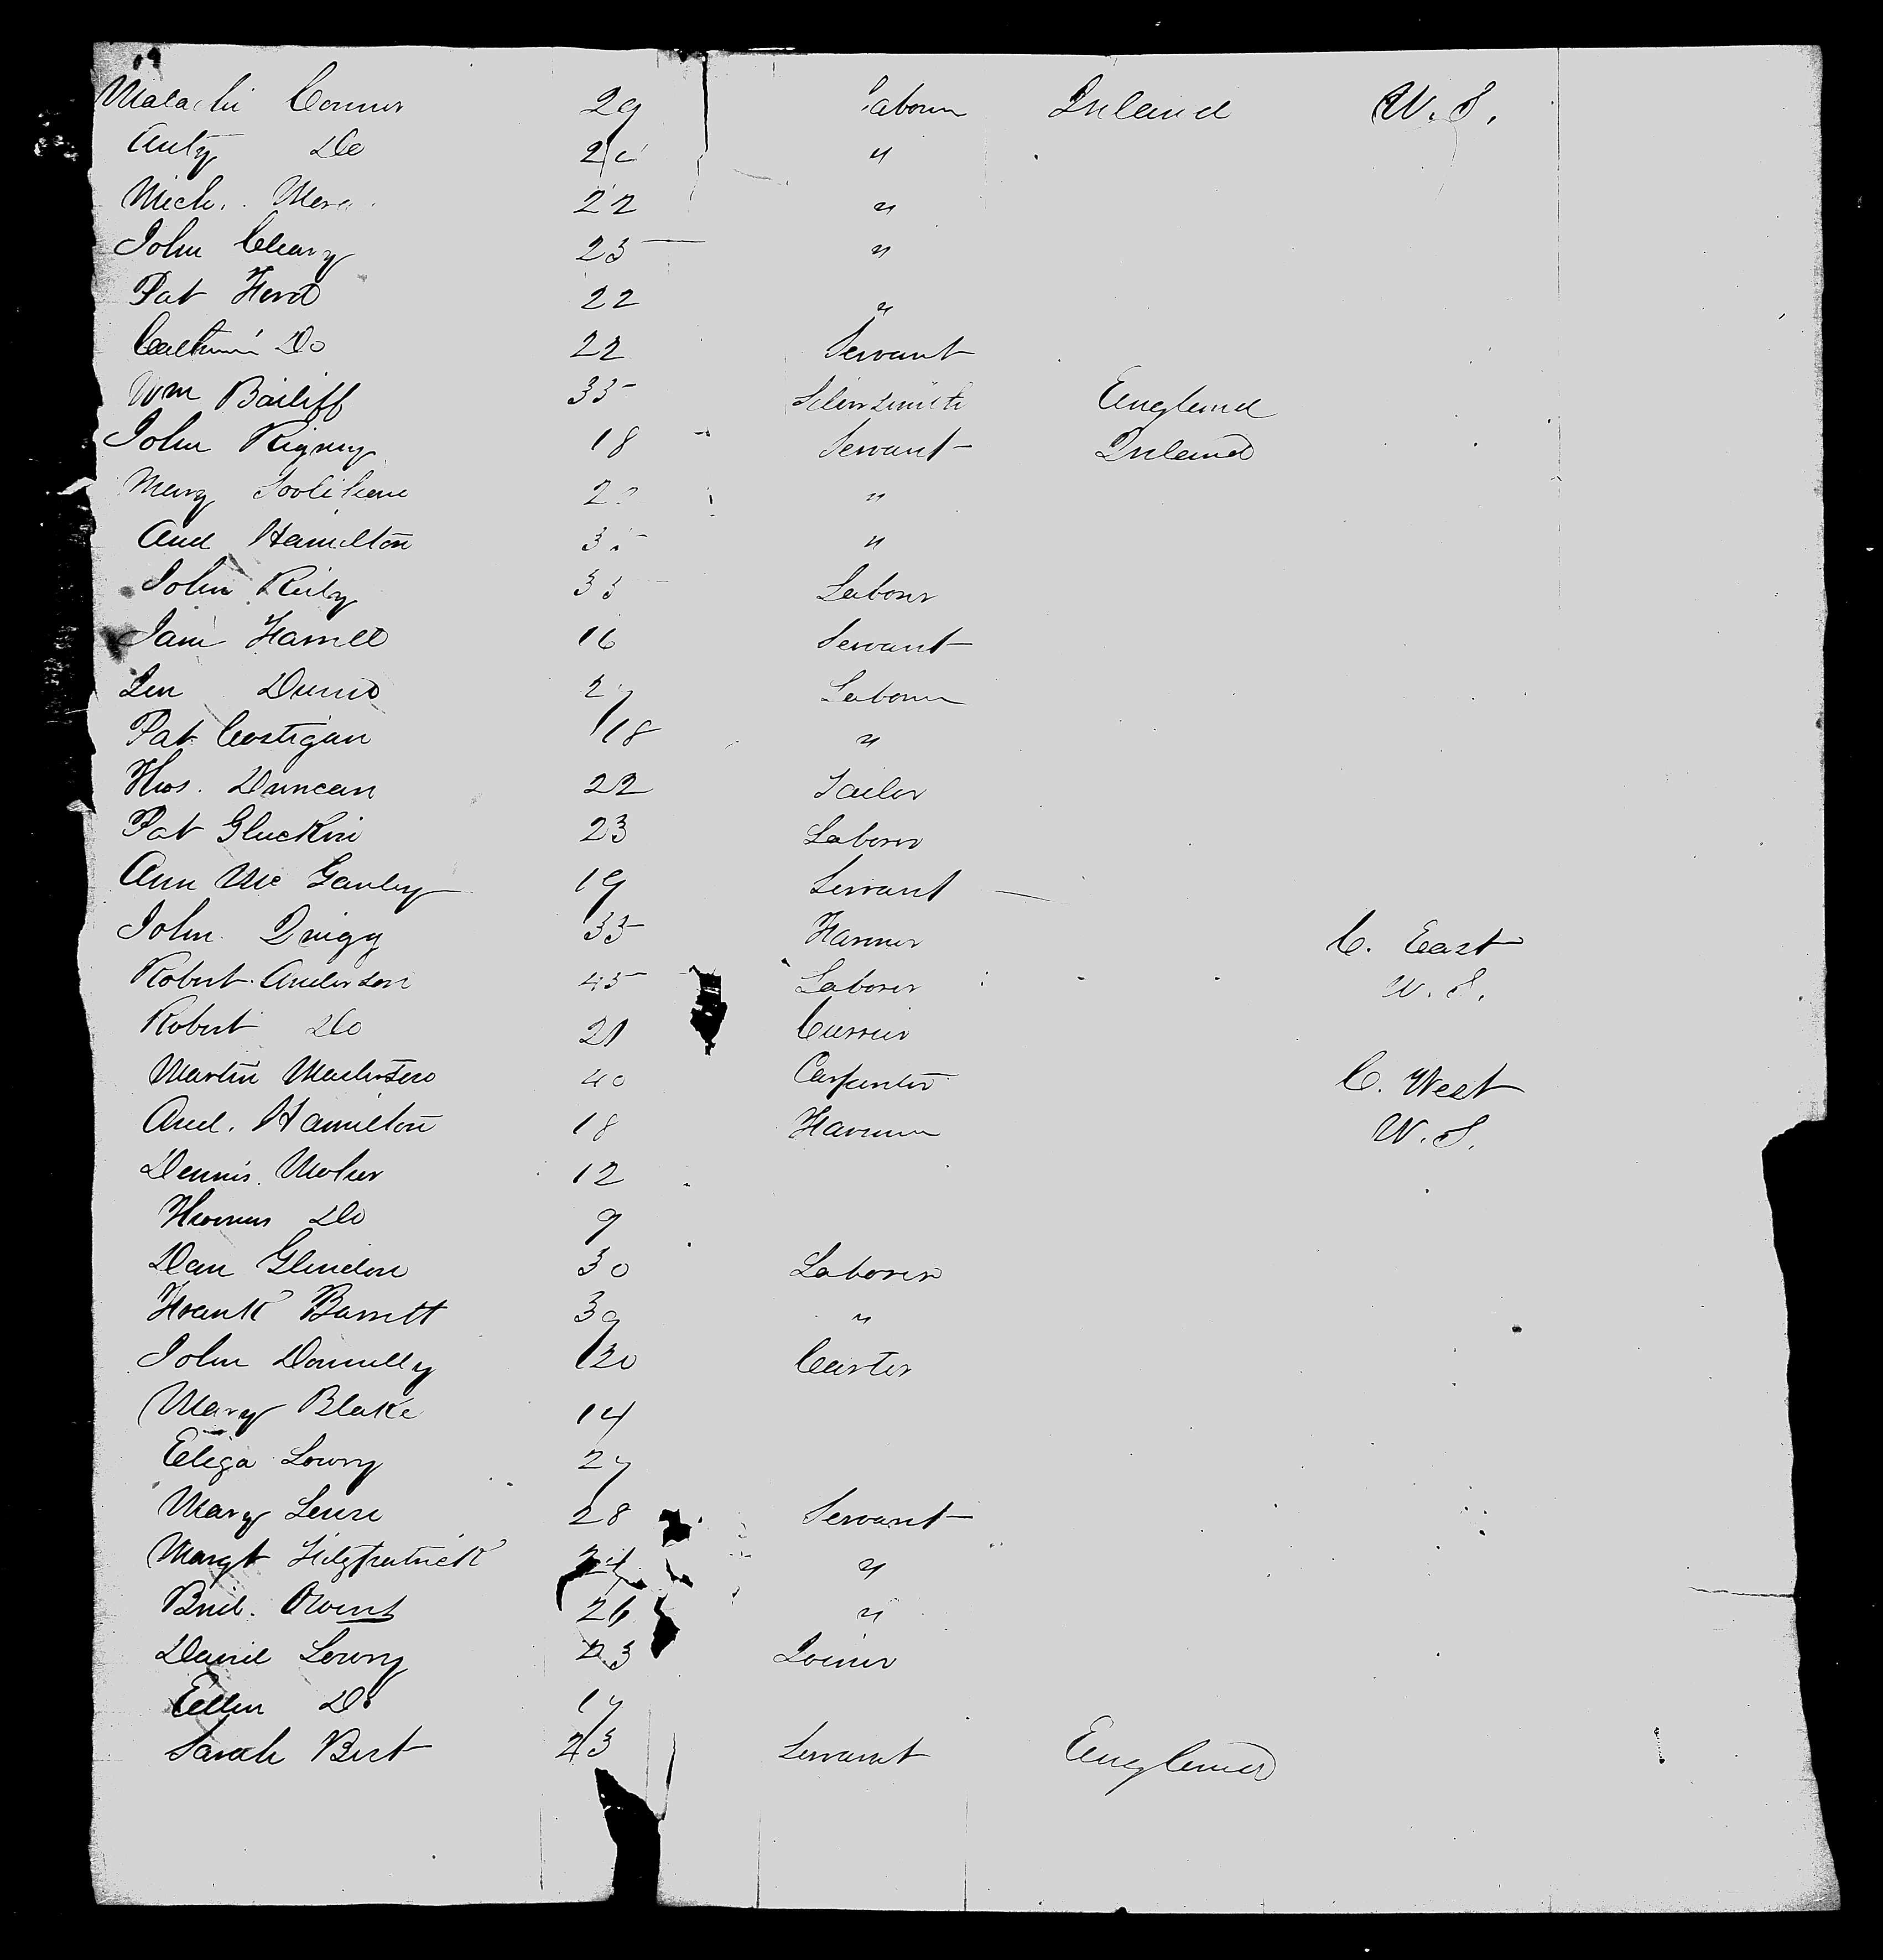 Malachi Connor 29 Laborer Ireland U.S.
Anty Do 20 "
Mich. 22 "
John Cleary 25 "
Pat Herd 22 "
Do 22 Servant
Wm Bailiff 35 Silversmith England
John Rigney 18 Servant Ireland
Mary "
And Hamilton "
John Reily Laborer
Jam Harnett 16 Servant
Dunn 27 Laborer
Pat Costigan 18 "
Thos. Duncan 22 Tailor
Pat Gluckin 23 Laborer
Ann Mc Ganley 19 Servant
John Quigg 35 Farmer C. East
Robert Anderson 45 Laborer U.S.
Robert Do 21 Currier
Martin 40 Carpenter C. West
And. Hamilton 18 Farmer U.S.
Dennis Moher 12
Thomas Do 9
Dan Glendon 30 Laborer
Frank Barrett 39 "
John Donnelly 20 Carter
Mary Blake 14
Eliza Lowry 27
Mary 28 Servant
Margt Fitzpatrick 24 "
Brid. Owens 26 "
David Lowry 23 Joiner
Ellen Do 17
Sarah Bert 23 Servant England